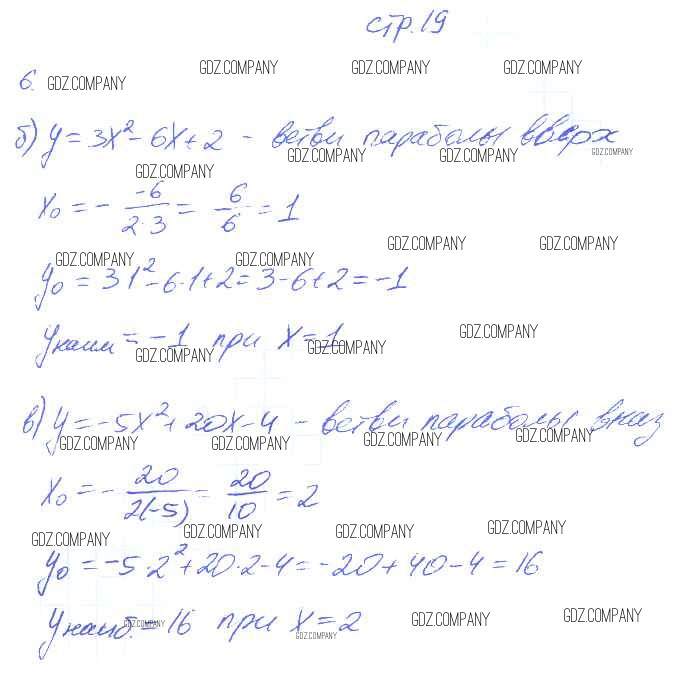 стр. 19
6.
б) y = 3x² - 6x + 2 - ветви параболы вверх
x₀ = - -6/2·3 = 6/6 = 1
y₀ = 3·1² - 6·1 + 2 = 3 - 6 + 2 = -1
y наим = -1 при x = 1
в) y = -5x² + 20x - 4 - ветви параболы вниз
x₀ = - 20/2(-5) = 20/10 = 2
y₀ = -5·2² + 20·2 - 4 = -20 + 40 - 4 = 16
y наиб. = 16 при x = 2
GDZ.COMPANY GDZ.COMPANY GDZ.COMPANY
GDZ.COMPANY
GDZ.COMPANY GDZ.COMPANY GDZ.COMPANY
GDZ.COMPANY
GDZ.COMPANY GDZ.COMPANY
GDZ.COMPANY GDZ.COMPANY
GDZ.COMPANY
GDZ.COMPANY GDZ.COMPANY
GDZ.COMPANY GDZ.COMPANY GDZ.COMPANY GDZ.COMPANY
GDZ.COMPANY GDZ.COMPANY GDZ.COMPANY GDZ.COMPANY
GDZ.COMPANY GDZ.COMPANY GDZ.COMPANY GDZ.COMPANY